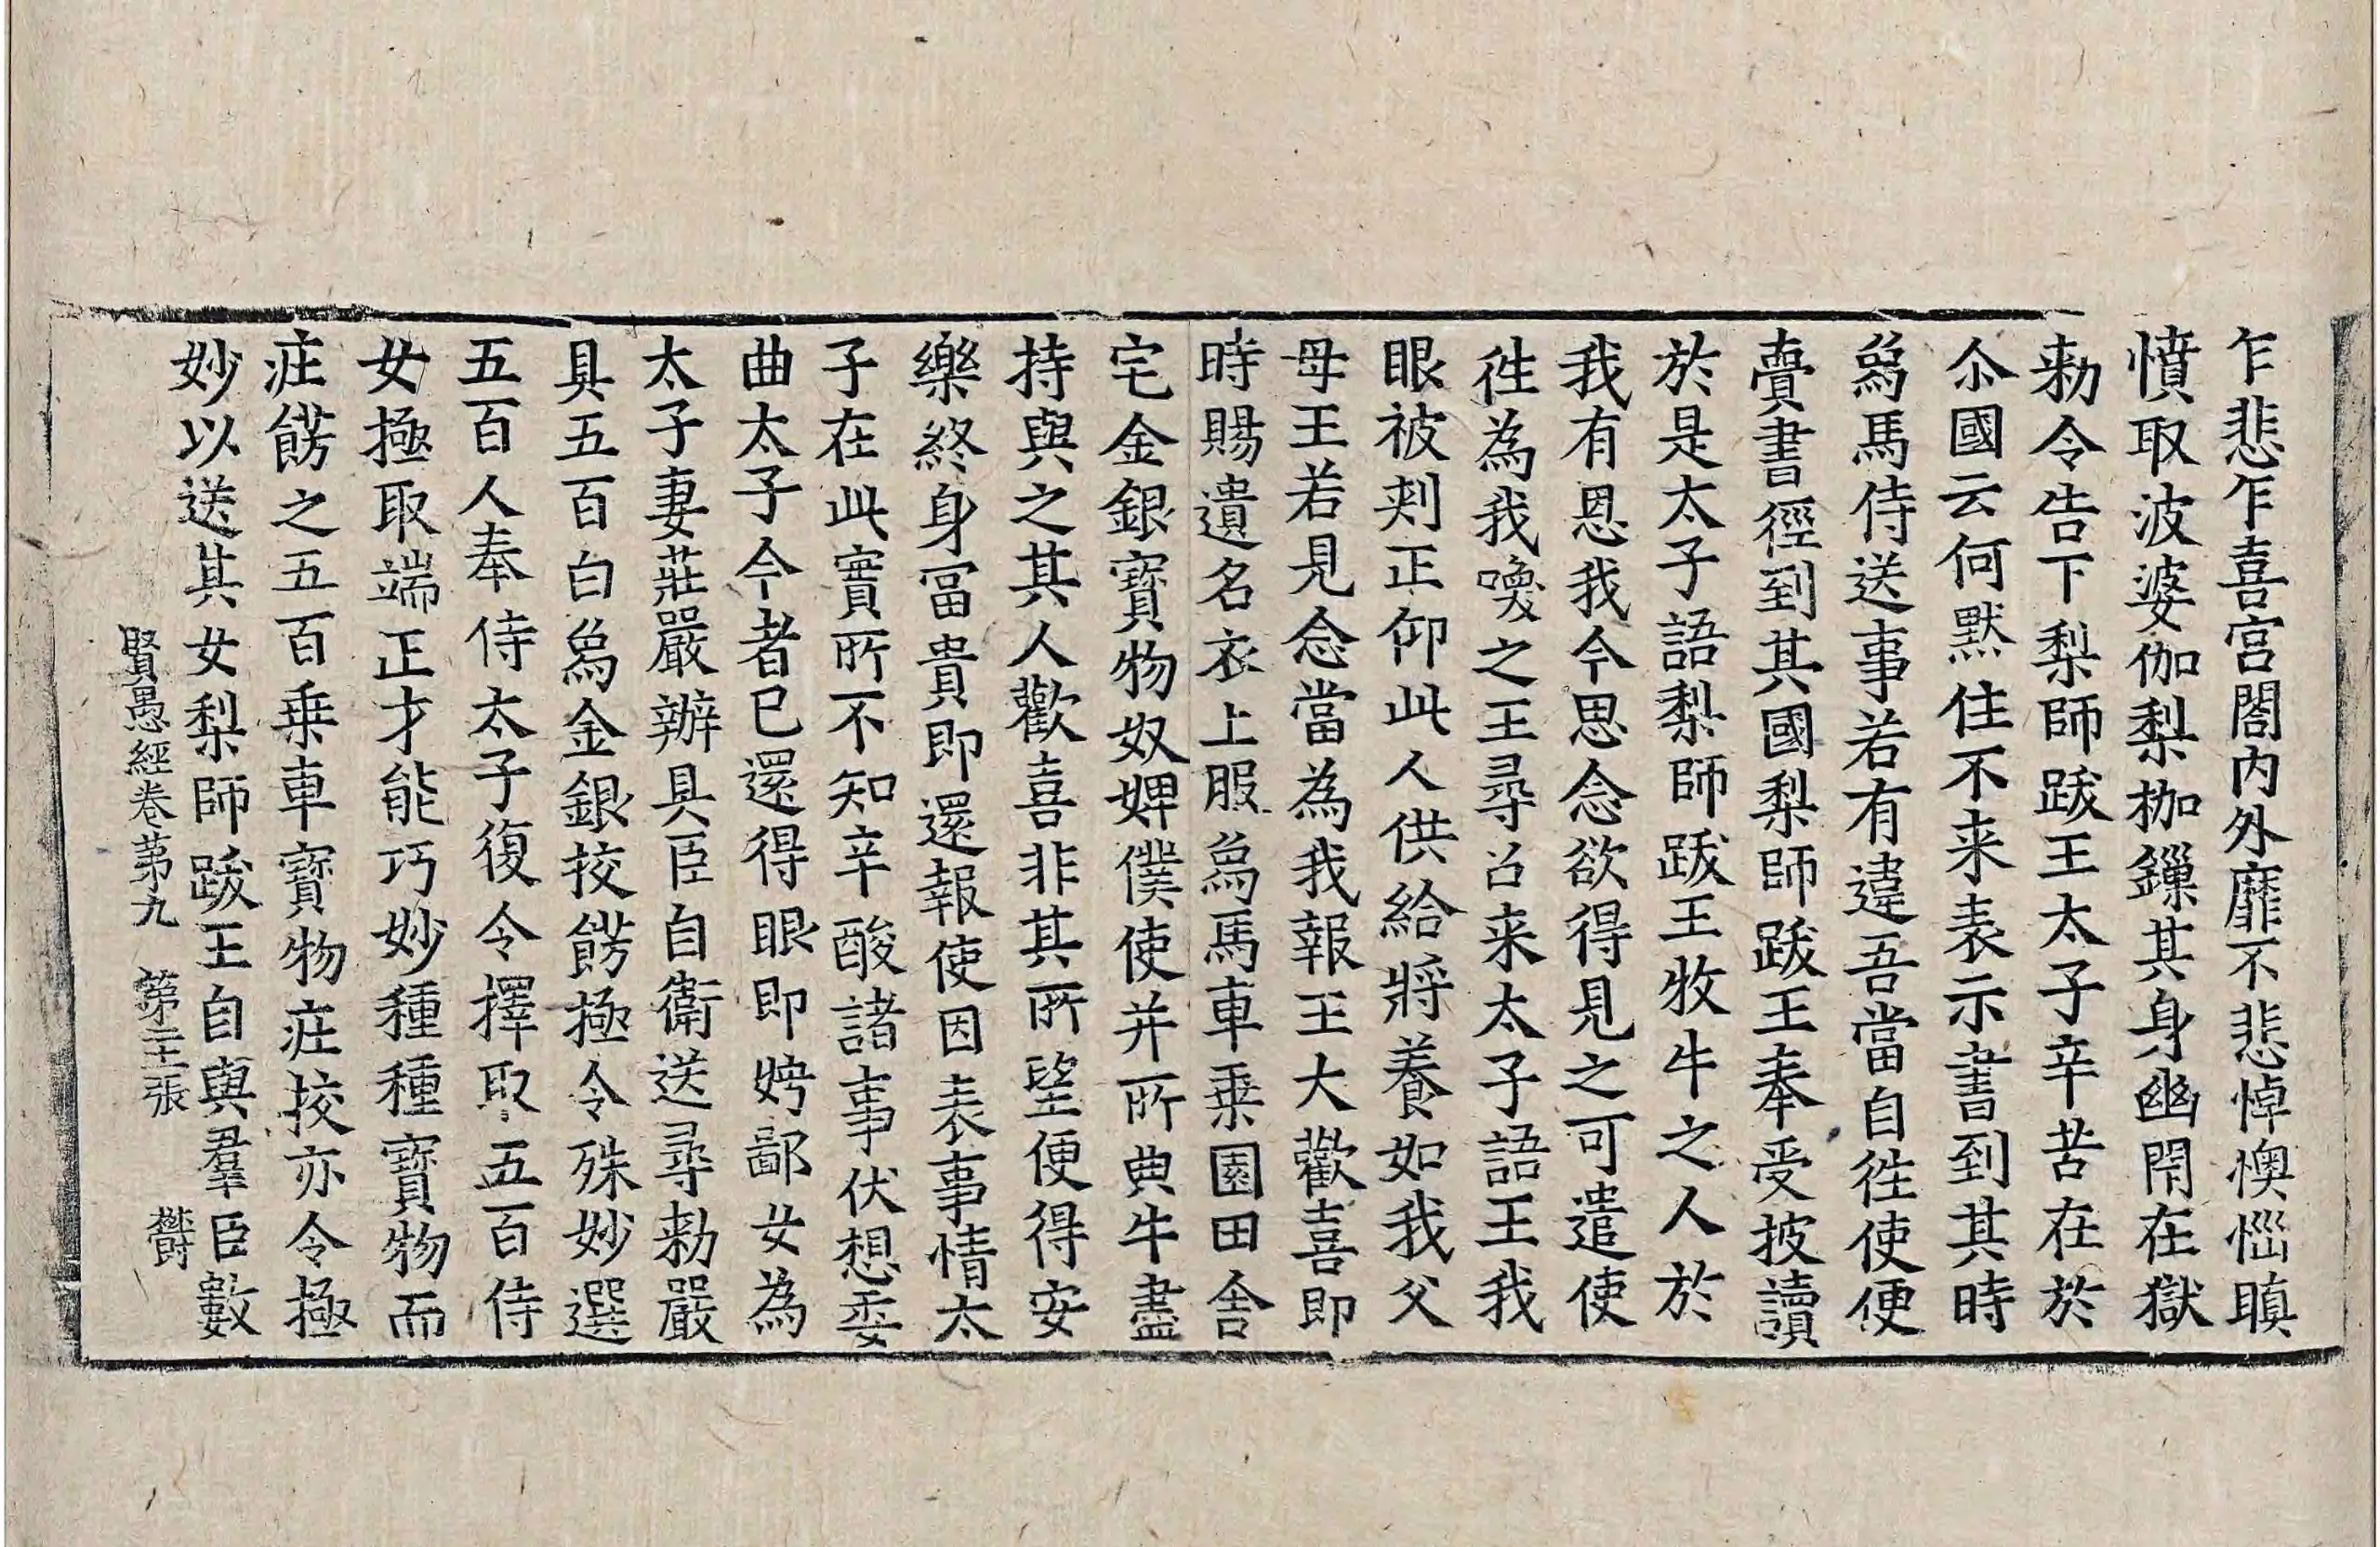 乍悲乍喜宮閤內外靡不悲悼懊惱瞋
憤取波婆伽梨枷鏁其身幽閇在獄
勑令告下梨師跋王太子辛苦在於
尒國云何黙住不来表示書到其時
爲馬侍送事若有違吾當自徃使便
賷書徑到其國梨師跋王奉受披讀
於是太子語梨師跋王牧牛之人於
我有恩我今思念欲得見之可遣使
徃為我喚之王尋召来太子語王我
眼被刾正仰此人供給將養如我父
母王若見念當為我報王大歡喜即
時賜遺名衣上服爲馬車乗園田舎
宅金銀寳物奴婢僕使并所典牛盡
持與之其人歡喜非其所望便得安
樂終身富貴即還報使因表事情太
子在此實所不知辛酸諸事伏想委
曲太子今者已還得眼即娉鄙女為
太子妻莊嚴辦具臣自衛送尋勑嚴
具五百白爲金銀挍餝極令殊妙選
五百人奉侍太子復令擇取五百侍
女極取端正才能巧妙種種寳物而
疘餝之五百乗車寳物疘挍亦令極
妙以送其女梨師跋王自與羣臣數
賢愚經卷第九 第二十張 欝